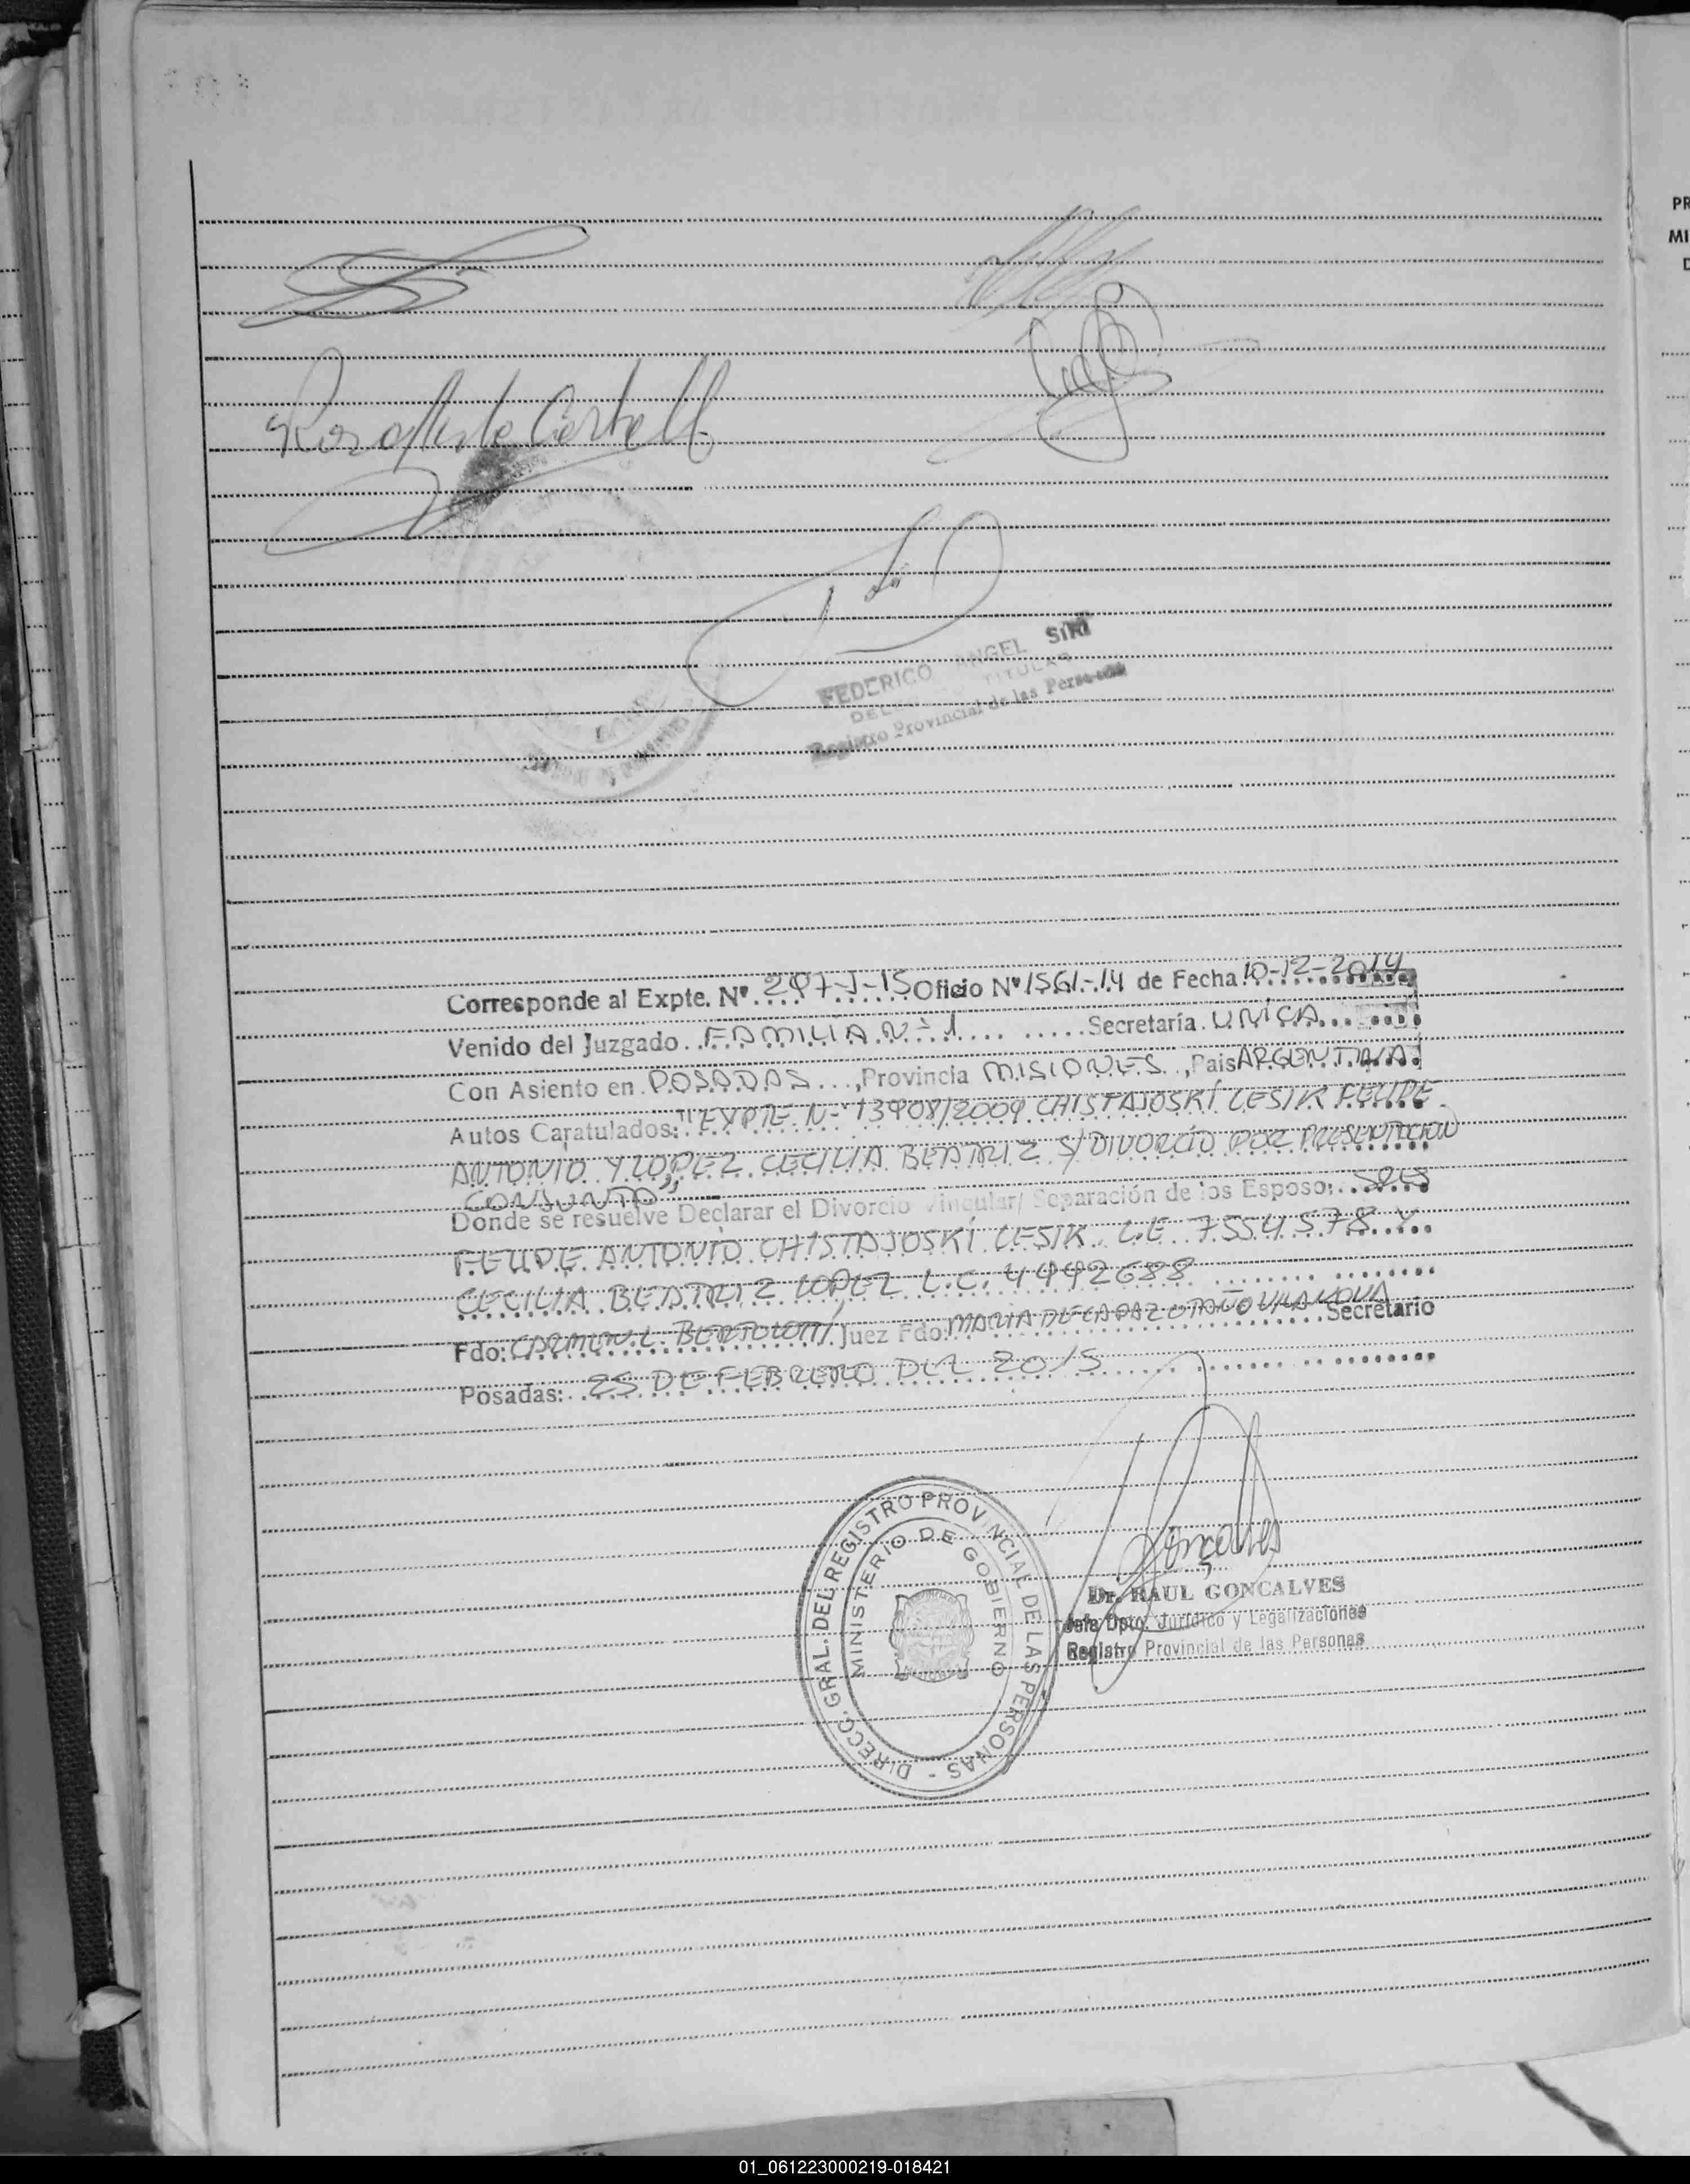 FEDERICO ANGEL SIRI
TITULAR
Registro Provincial de las Personas
Corresponde al Expte. Nº 297-J-15 Oficio Nº 1561-14 de Fecha 10-12-2014
Venido del Juzgado FAMILIA Nº 1 Secretaría UNICA
Con Asiento en POSADAS, Provincia MISIONES, Pais ARGENTINA
Autos Caratulados: "EXPTE Nº 13908/2009 CHISTAJOSKI LESIK FELIPE
ANTONIO Y LOPEZ CECILIA BEATRIZ S/ DIVORCIO POR PRESENTACION
CONJUNTA"
Donde se resuelve Declarar el Divorcio Vincular/ Separación de los Esposo: SRES
FELIPE ANTONIO CHISTAJOSKI LESIK L.E 7554578 Y
CECILIA BEATRIZ LOPEZ L.C. 4942688
Fdo: CARMEN L. BERTOLOTTI, Juez Fdo: MARIA DE LA PAZ OTAÑO VILANOVA Secretario
Posadas: 25 DE FEBRERO DEL 2015
DIRECC. GRAL. DEL REGISTRO PROVINCIAL DE LAS PERSONAS -
MINISTERIO DE GOBIERNO
Dr. RAUL GONCALVES
Jefe Dpto. Jurídico y Legalizaciones
Registro Provincial de las Personas
PR
MI
D
01_061223000219-018421